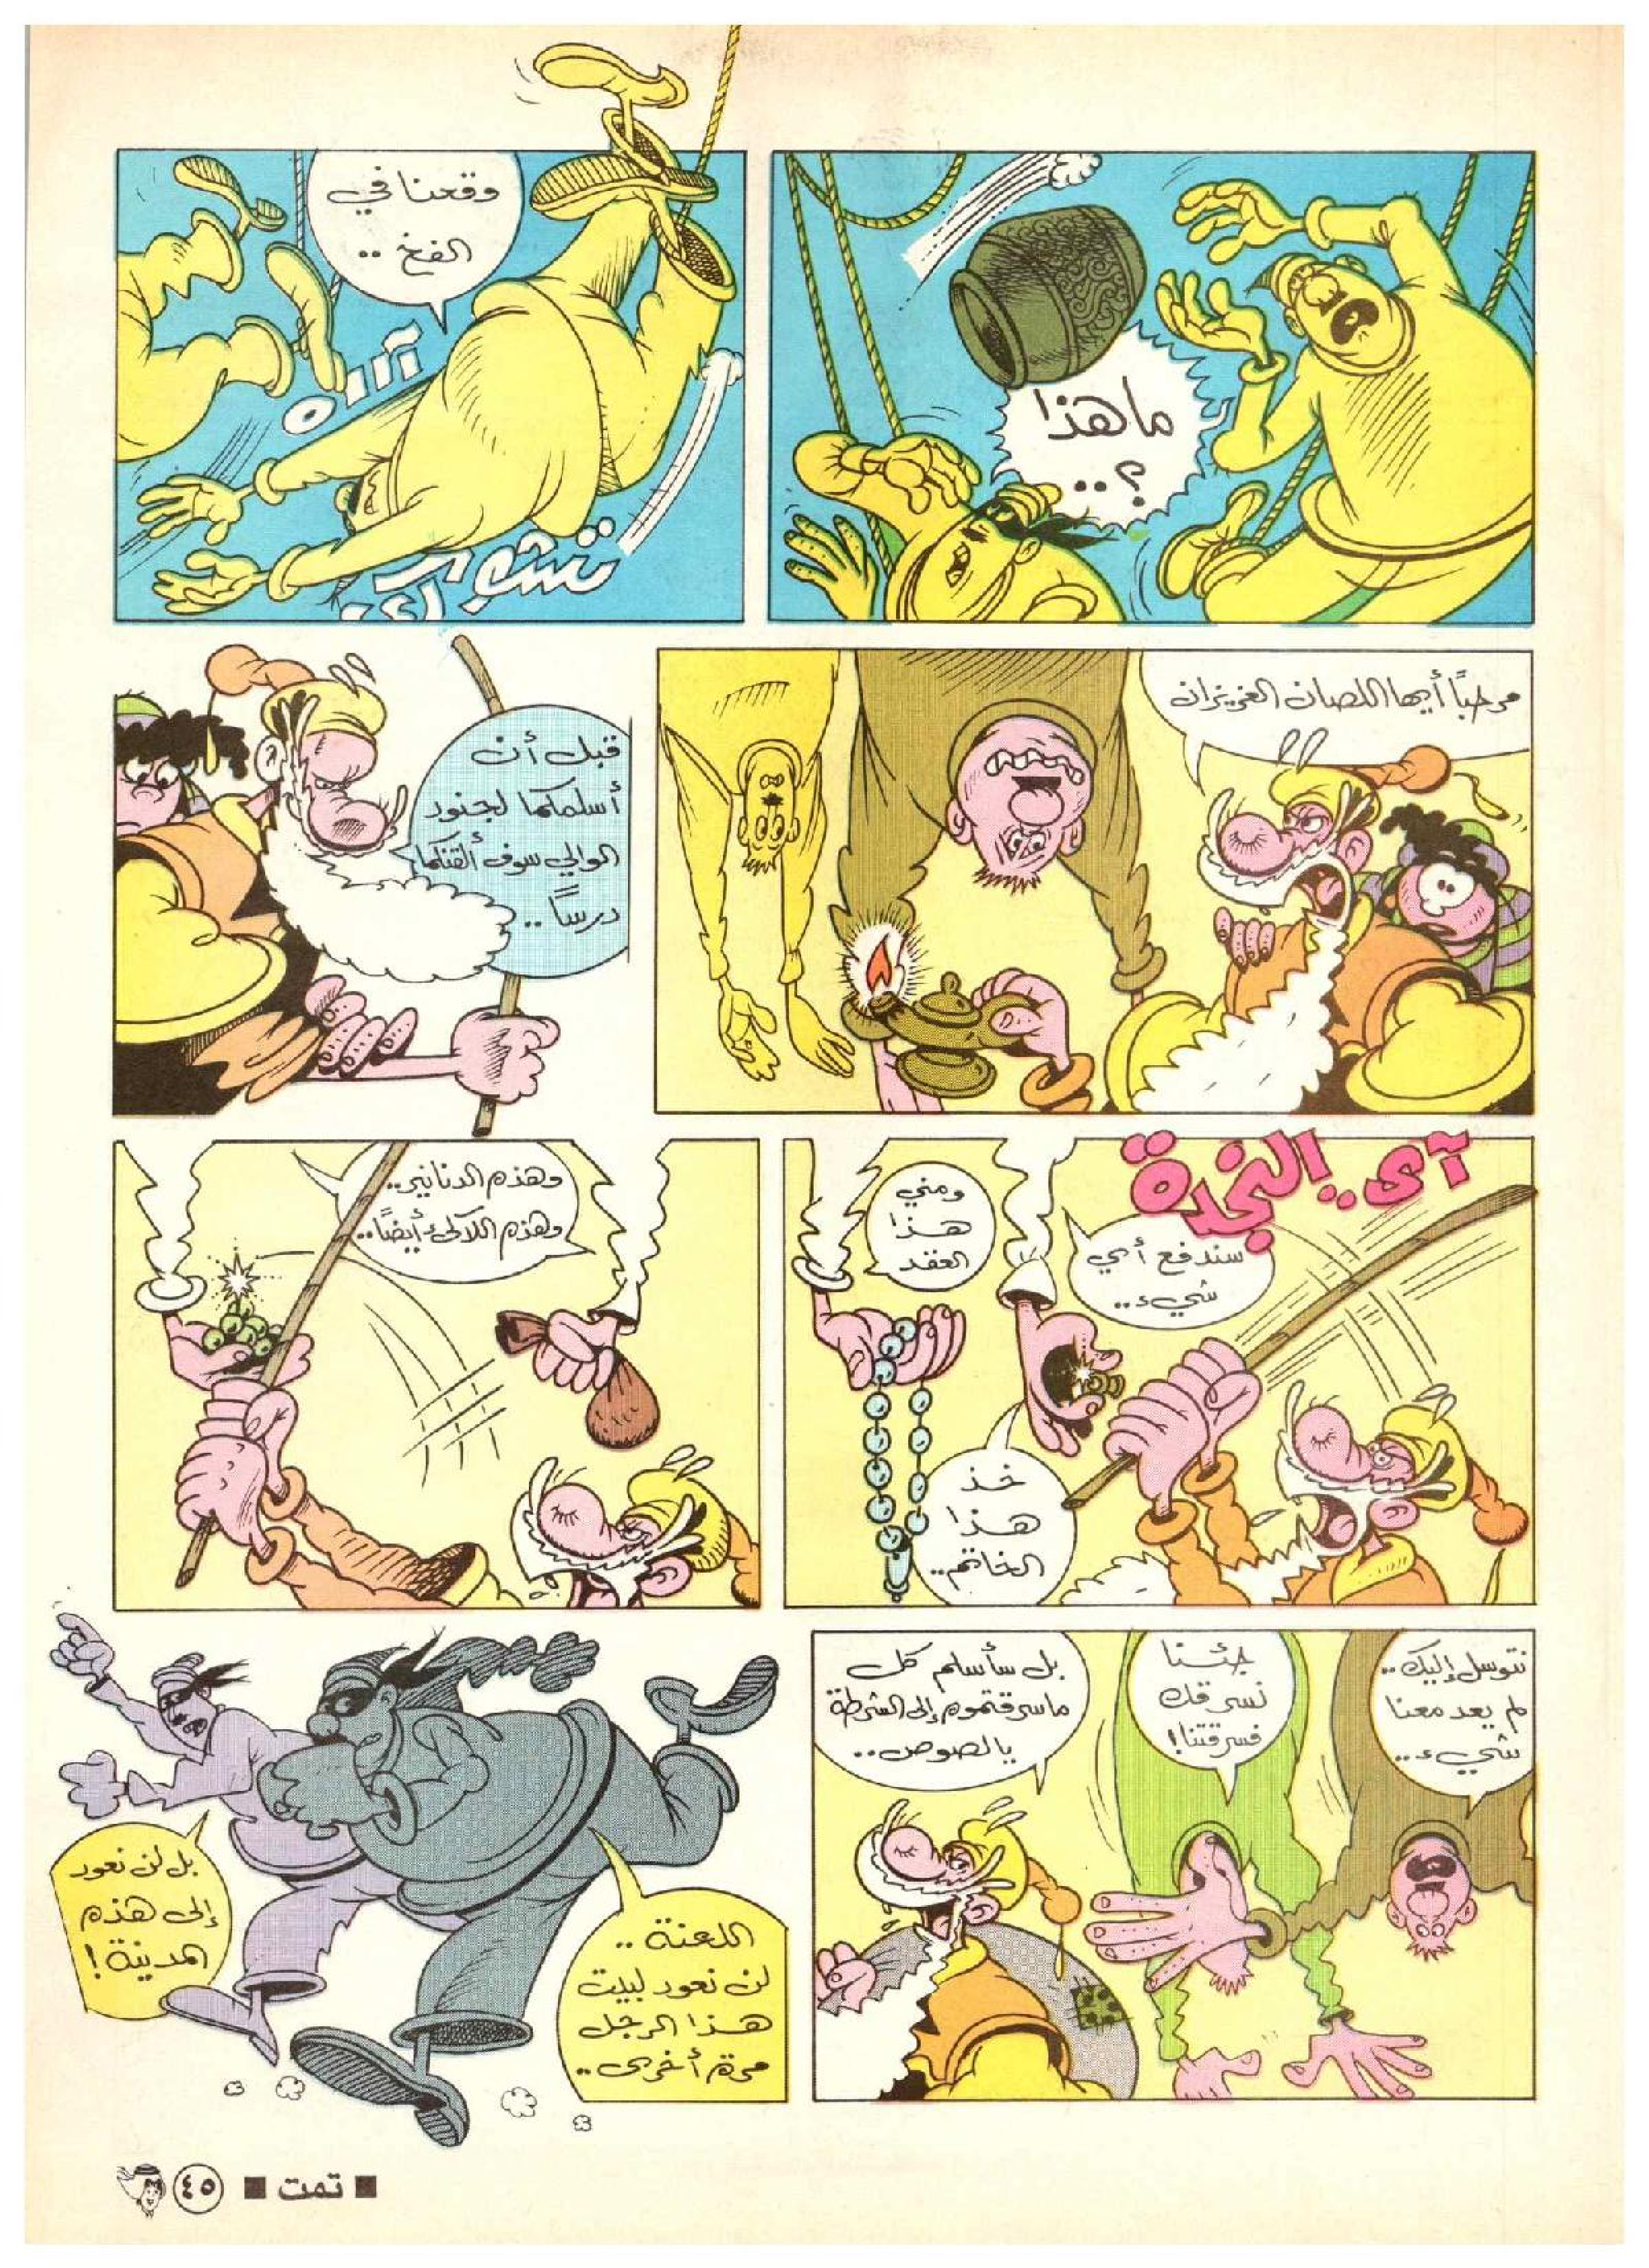 ما هذا
؟..
وقعنا في
الفخ ..
آااه
مرحباً أيها اللصان العزيزان
قبل أن
أسلمكما لجنود
الوالي سوف ألقنكما
درساً ..
آى.. النجدة
سندفع أي
شيء..
ومني
هذا
العقد
خذ
هذا
الخاتم..
وهذه الدنانير..
وهذه اللآلئ أيضًا..
نتوسل إليك..
لم يعد معنا
شيء ..
جئنا
نسرقك
فسرقتنا!
بل سأسلم كل
ماسرقتموه إلى الشرطة
يالصوص..
اللعنة ..
لن نعود لبيت
هذا الرجل
مرة أخرى..
بل لن نعود
إلى هذه
المدينة !
■ تمت ■
٤٥